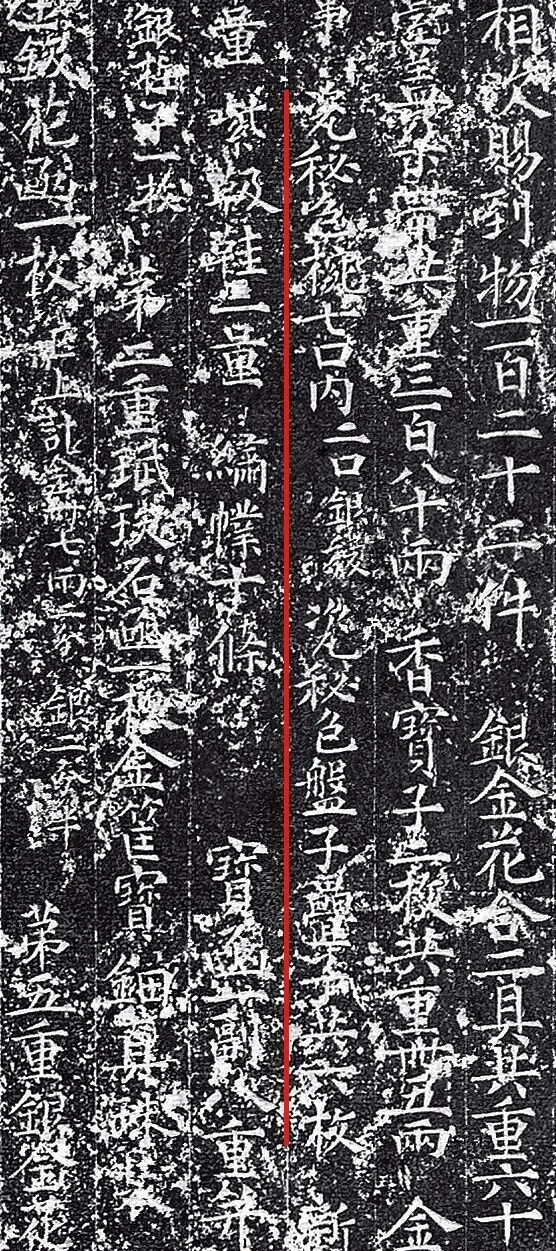 相次賜到物一百二十二件 銀金花合二具共重六十
臺蓋朵帶共重三百八十兩 香寶子二枚共重卌五兩 金
事 瓷秘色椀七口內二口銀稜 瓷秘色盤子疊子共六枚 新
量 紫靸鞋二量 繡幞十條 寶函一副八重并
銀柱子一枚 第二重珷玞石函一枚金筐寶鈿真珠裝
金鈒花函一枚 已上計金卌七兩二分 銀二分半 第五重銀金花